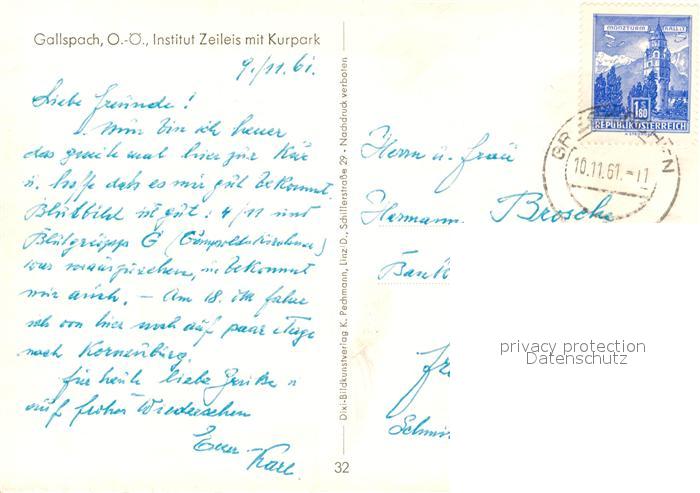 Gallspach, O.-Ö., Institut Zeileis mit Kurpark
9./11.61.
Liebe Freunde!
Nun bin ich heuer
das zweite mal hier zur Kur
u. hoffe daß es mir gut bekommt.
Blutbild ist gut: 4/11 und
Blutgruppe
bekommt
mir auch. – Am 18. fahre
ich von hier noch auf paar Tage
nach Korneuburg.
für heute liebe Grüße u
auf frohes Wiedersehen
Euer
Karl
Dixi-Bildkunstverlag K. Pechmann, Linz/D., Schillerstraße 29 · Nachdruck verboten
32
MÜNZTURM HALL I.T.
1.80
REPUBLIK ÖSTERREICH
10.11.61.-11
Herrn u. Frau
Hermann Brosche
Bank
Schmi
privacy protection
Datenschutz